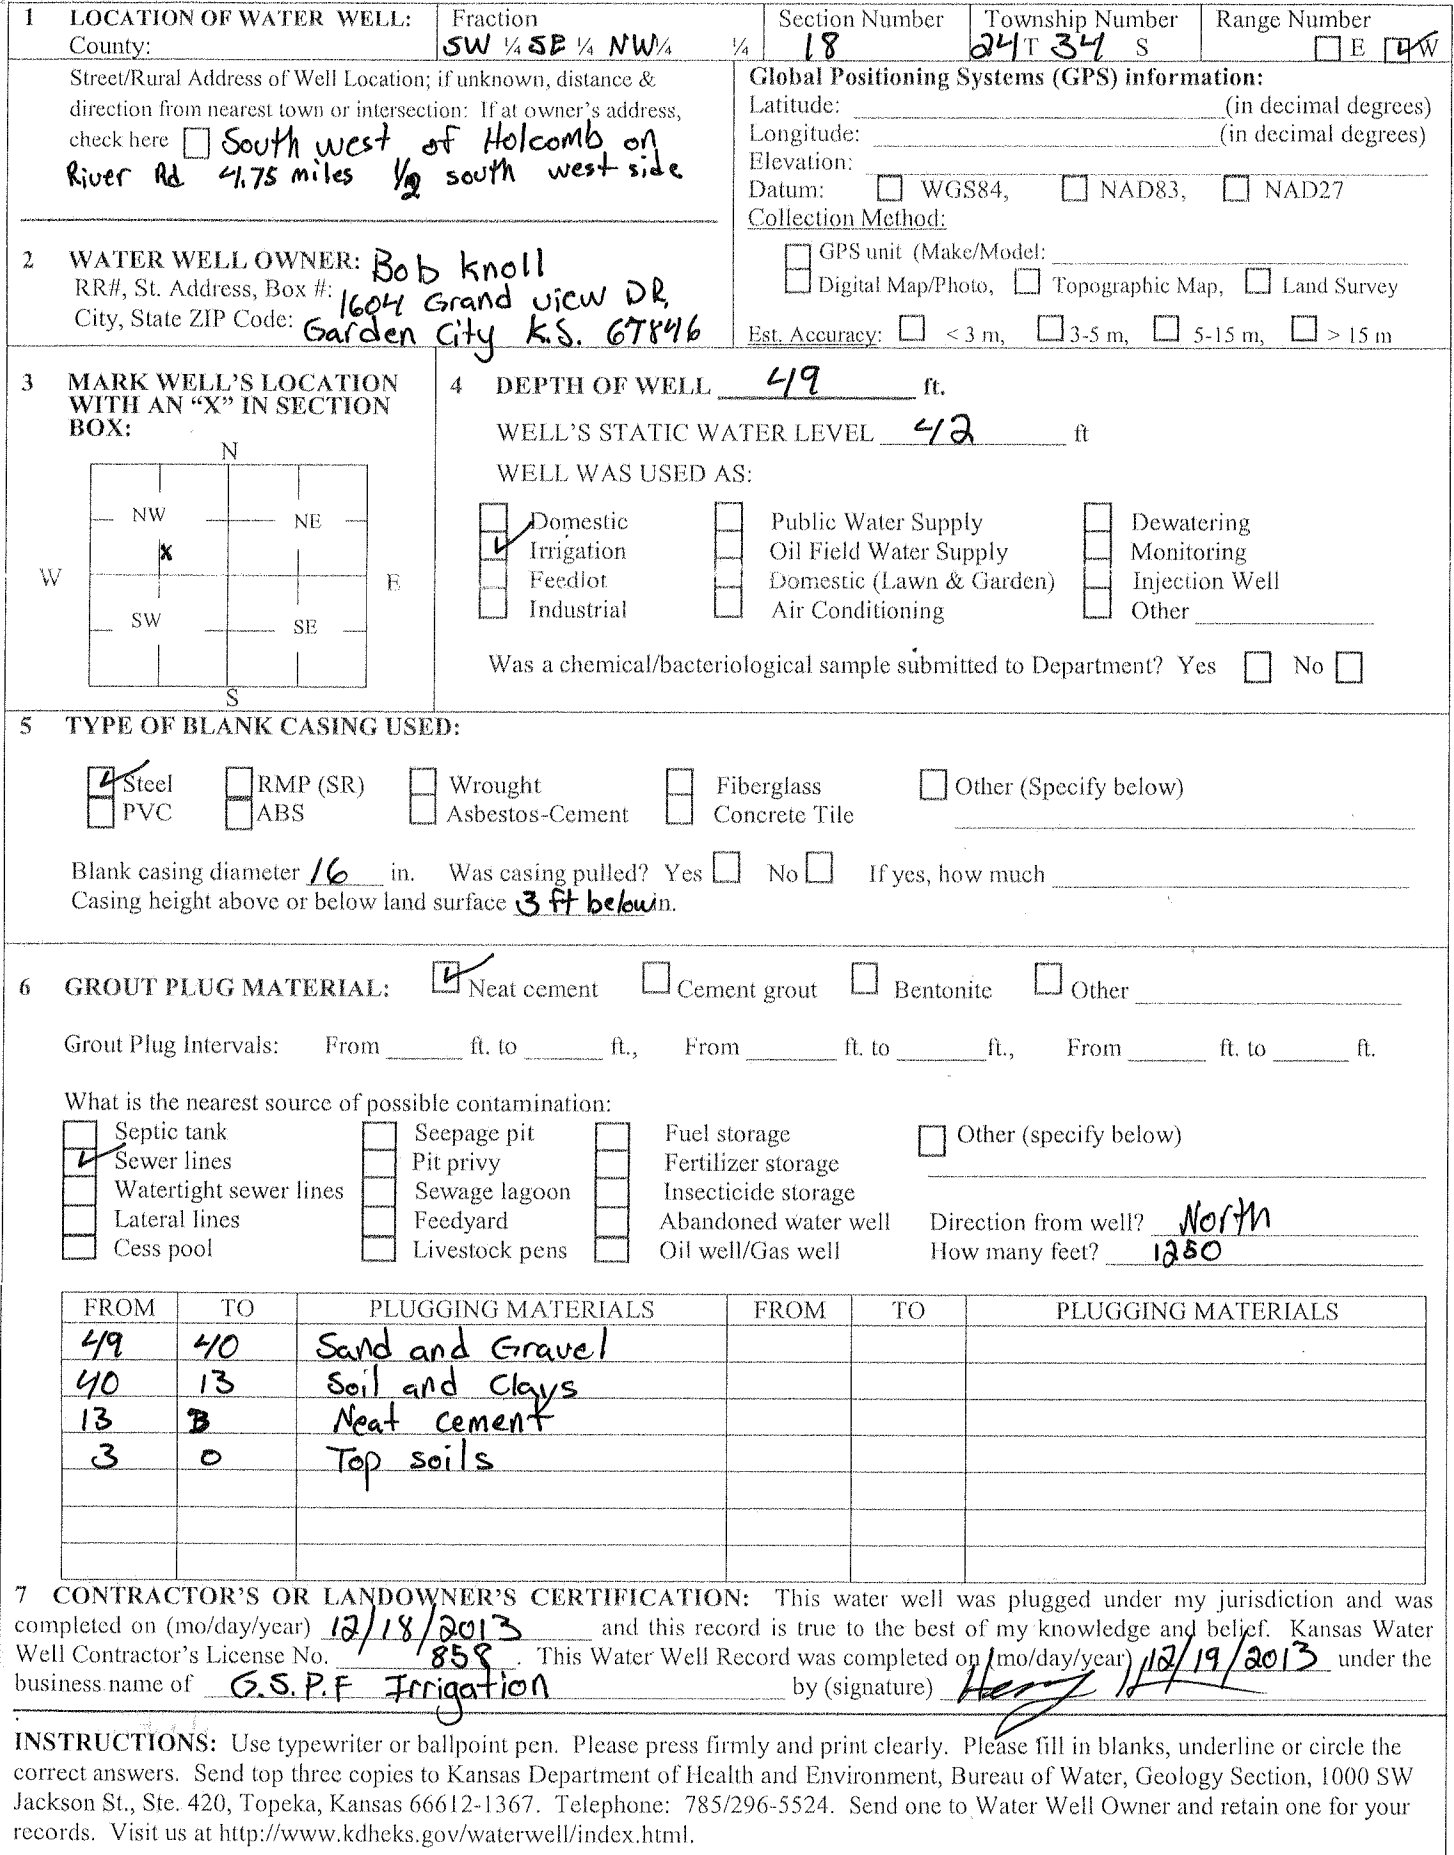 1 LOCATION OF WATER WELL: Fraction Section Number Township Number Range Number
County: SW ¼ SE ¼ NW ¼ ¼ 18 24 T 34 S E W
Street/Rural Address of Well Location; if unknown, distance &
direction from nearest town or intersection: If at owner's address,
check here South west of Holcomb on
River Rd 4.75 miles 1/2 south west side
Global Positioning Systems (GPS) information:
Latitude: (in decimal degrees)
Longitude: (in decimal degrees)
Elevation:
Datum: WGS84, NAD83, NAD27
Collection Method:
GPS unit (Make/Model:
Digital Map/Photo, Topographic Map, Land Survey
Est. Accuracy: < 3 m, 3-5 m, 5-15 m, > 15 m
2 WATER WELL OWNER: Bob Knoll
RR#, St. Address, Box #: 1604 Grand view DR,
City, State ZIP Code: Garden City K.S. 67846
3 MARK WELL'S LOCATION
WITH AN "X" IN SECTION
BOX:
N
NW NE
X
W E
SW SE
S
4 DEPTH OF WELL 49 ft.
WELL'S STATIC WATER LEVEL 42 ft
WELL WAS USED AS:
Domestic Public Water Supply Dewatering
Irrigation Oil Field Water Supply Monitoring
Feedlot Domestic (Lawn & Garden) Injection Well
Industrial Air Conditioning Other
Was a chemical/bacteriological sample submitted to Department? Yes No
5 TYPE OF BLANK CASING USED:
Steel RMP (SR) Wrought Fiberglass Other (Specify below)
PVC ABS Asbestos-Cement Concrete Tile
Blank casing diameter 16 in. Was casing pulled? Yes No If yes, how much
Casing height above or below land surface 3 ft below in.
6 GROUT PLUG MATERIAL: Neat cement Cement grout Bentonite Other
Grout Plug Intervals: From ft. to ft., From ft. to ft., From ft. to ft.
What is the nearest source of possible contamination:
Septic tank Seepage pit Fuel storage Other (specify below)
Sewer lines Pit privy Fertilizer storage
Watertight sewer lines Sewage lagoon Insecticide storage
Lateral lines Feedyard Abandoned water well Direction from well? North
Cess pool Livestock pens Oil well/Gas well How many feet? 1250
FROM TO PLUGGING MATERIALS FROM TO PLUGGING MATERIALS
49 40 Sand and Gravel
40 13 Soil and Clays
13 3 Neat cement
3 0 Top soils
7 CONTRACTOR'S OR LANDOWNER'S CERTIFICATION: This water well was plugged under my jurisdiction and was
completed on (mo/day/year) 12/18/2013 and this record is true to the best of my knowledge and belief. Kansas Water
Well Contractor's License No. 858 . This Water Well Record was completed on (mo/day/year) 12/19/2013 under the
business name of G.S.P.F Irrigation by (signature) Henry
INSTRUCTIONS: Use typewriter or ballpoint pen. Please press firmly and print clearly. Please fill in blanks, underline or circle the
correct answers. Send top three copies to Kansas Department of Health and Environment, Bureau of Water, Geology Section, 1000 SW
Jackson St., Ste. 420, Topeka, Kansas 66612-1367. Telephone: 785/296-5524. Send one to Water Well Owner and retain one for your
records. Visit us at http://www.kdheks.gov/waterwell/index.html.